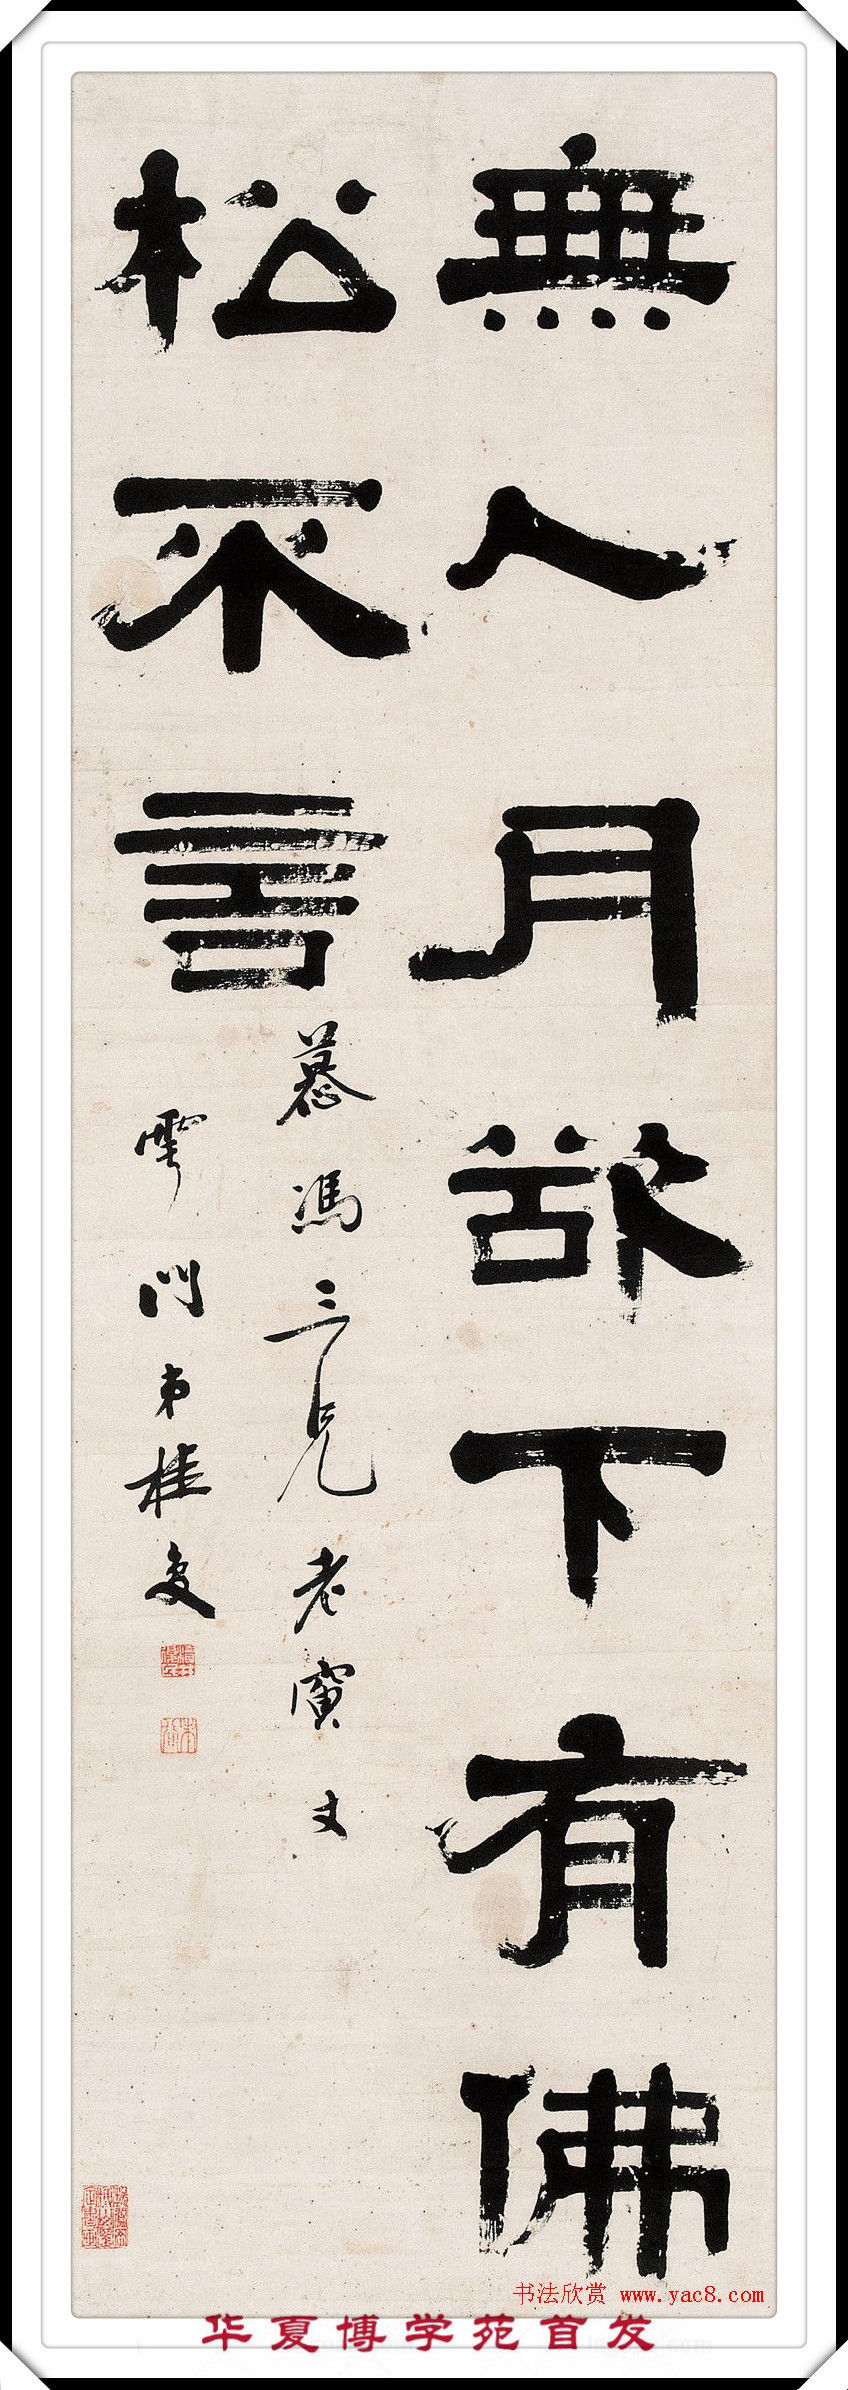 無人月欲下有佛
松不言
慕馮三兄老寅丈
雩門弟桂复
书法欣赏 www.yac8.com
华夏博学苑首发